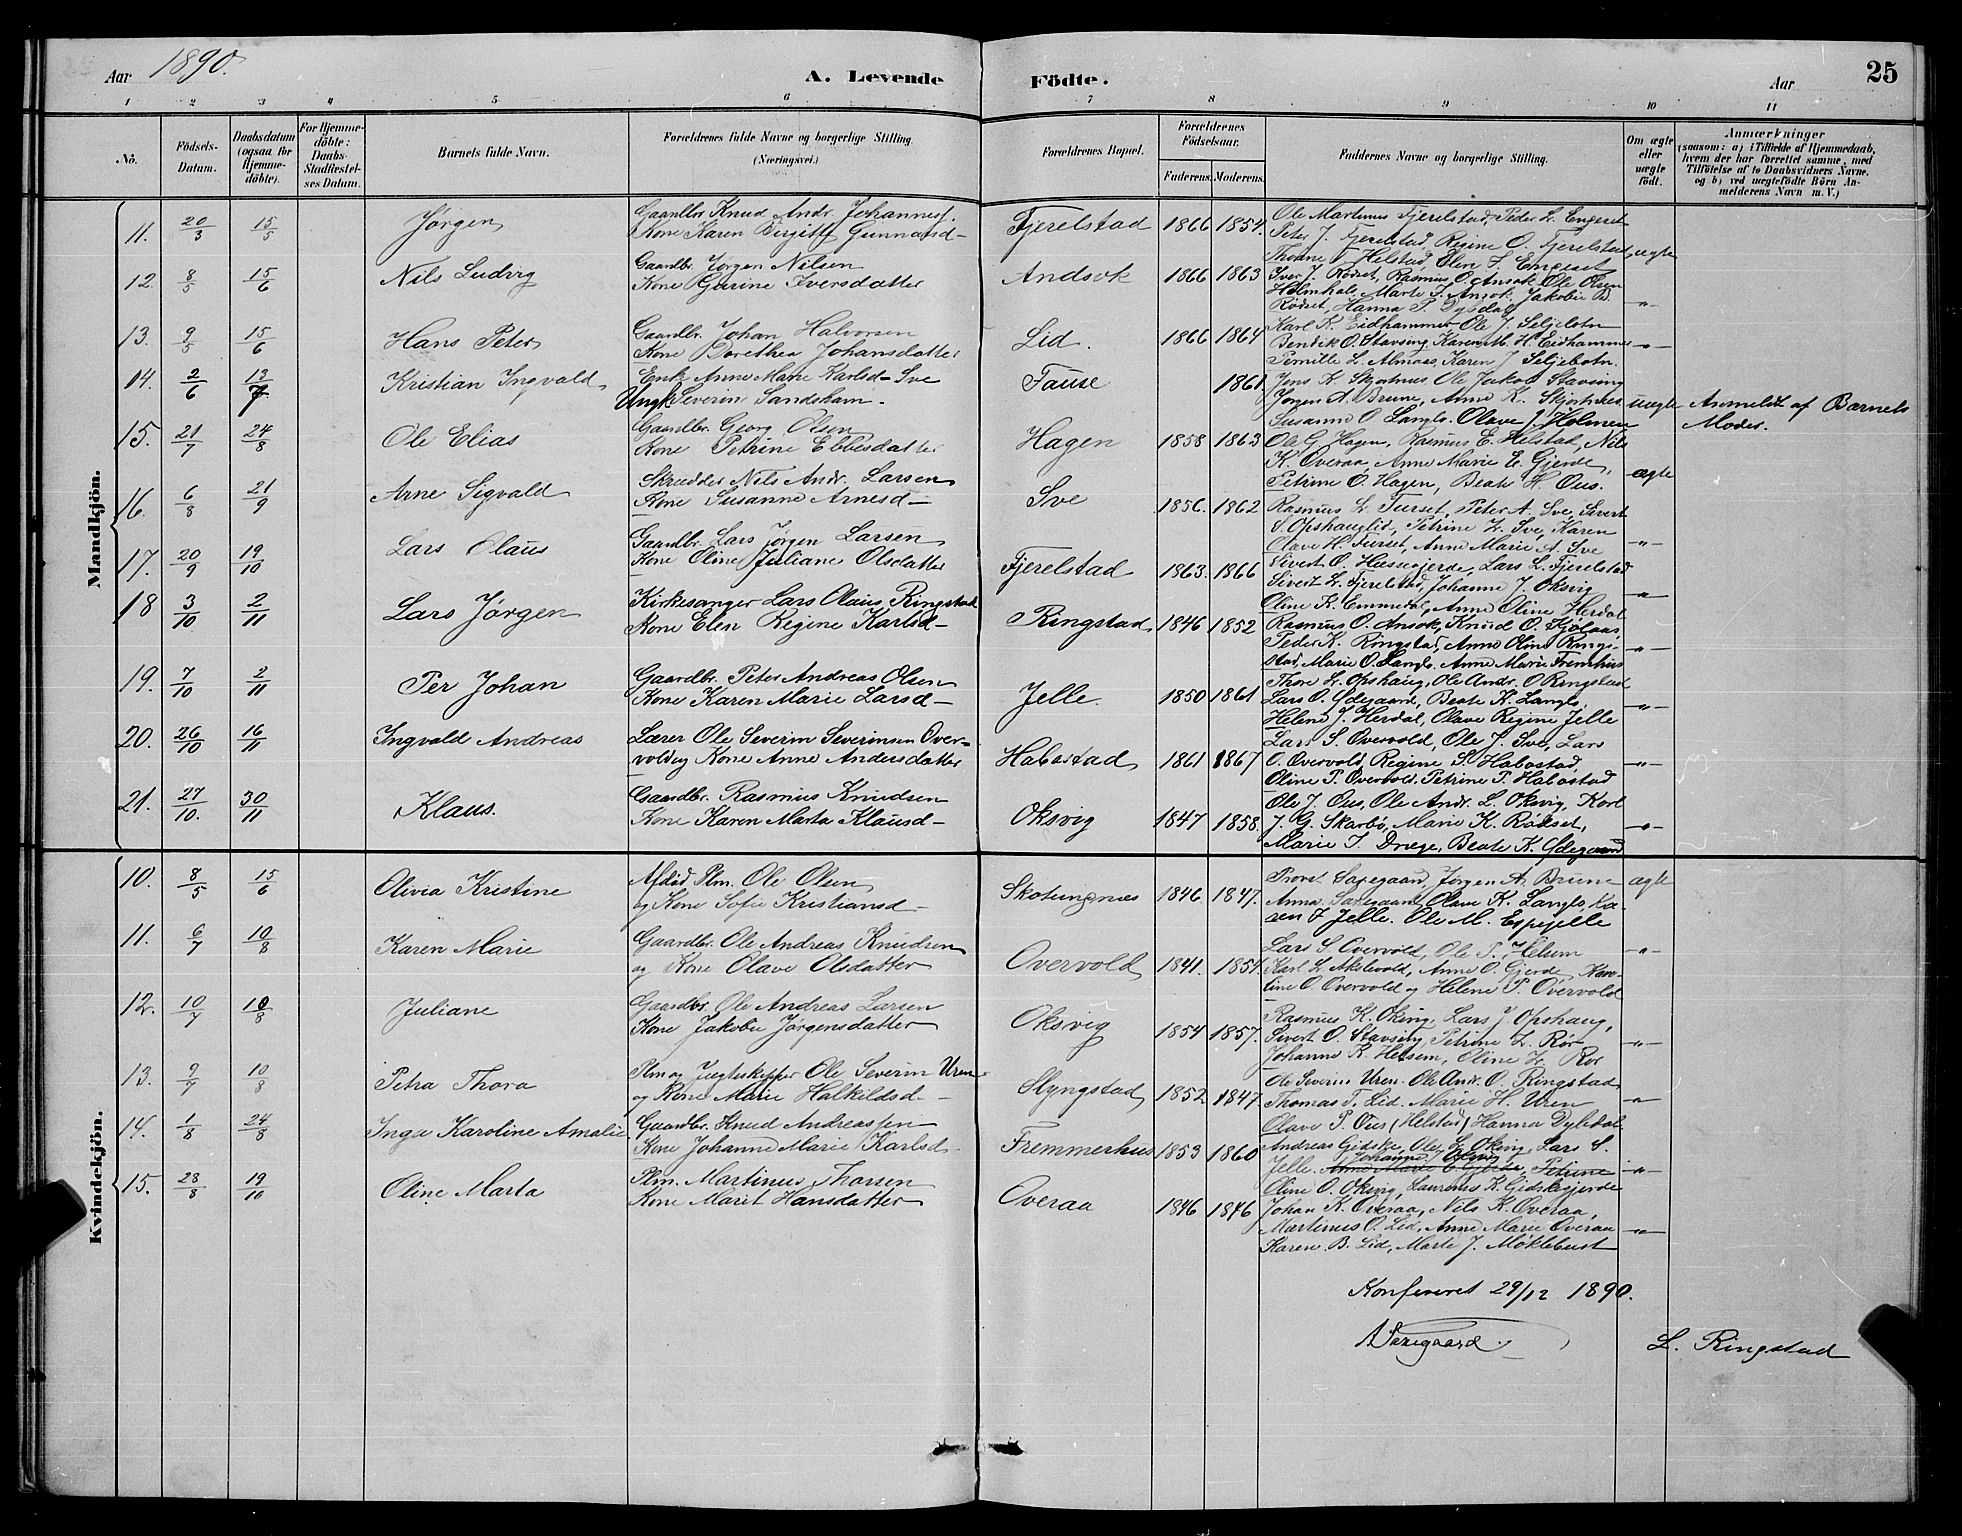 Aar 1890.
A. Levende Födte.
Aar
25
1 2 3 4 5 6 7 8 9 10 11
Nö.
Födsels-Datum.
Daabsdatum (ogsaa for Hjemme-döbte).
For Hjemme-döbte: Daabs-Stadfæstel-ses Datum.
Barnets fulde Navn.
Forældrenes fulde Navne og borgerlige Stilling. (Næringsvei.)
Forældrenes Bopæl.
Forældrenes Födselsaar.
Faderens. Moderens.
Faddernes Navne og borgerlige Stilling.
Om ægte eller uægte födt.
Anmærkninger
(saasom: a) i Tilfælde af Hjemmedaab, hvem der har forrettet samme, med Tilföielse af to Daabsvidners Navne, og b) ved uægtefödte Börn An-melderens Navn m. V.)
Mandkjön.
11. 20/3 15/5 Jørgen
Gaardbr Knud Andr. Johannesf.
Kone Karen Birgitte Gunnarsd-
Fjerelstad 1866 1854.
Ole Martinus Fjerelstad, Peder L. Engeset
Peter J. Fjerelstad, Regine O. Fjerelstad, ægte
Helstad, Olen Engeset
12. 8/5 15/6 Nils Ludvig
Gaardbr Jørgen Nilsen
Kone Gurine Iversdatter
Andsok 1866 1863
Iver J. Rødset, Rasmus O. Ansok Ole Olsen
Holmhole, Marte J. Ansok, Jakobie B.
Rødset, Hanna P. Dybdal -"-
13. 9/5 15/6 Hans Peter
Gaardbr. Johan Halvorsen
Kone Dorethea Johansdatter
Lid. 1866 1864
Karl K. Eidhammer Ole J. Seljebotn
Bendik O. Stavseng, Karen M. H. Eidhammer -"-
Pernille L. Almaas, Karen J Seljebotn.
14. 2/6 13/7 Kristian Ingvald
Enke Anne Marie Karlsd- Sve
Ungk Severin Sandsham.
Fause 1861.
Jens K. Skjortnes, Ole Jakob Stavseng
Jørgen A. Brune, Anne K. Skjortnes uægte Anmeldt af Barnets
Susanne O Langlo. Olave J. Holmen Moder.
15. 21/7 24/8 Ole Elias
Gaardbr. Georg Olsen
Kone Petrine Ebbesdatter
Hagen 1858 1863
Ole G. Hagen, Rasmus E. Helstad, Nils
K. Overaa, Anne Marie E. Gjerde, ægte
Petrine O. Hagen, Beate H. Ous.
16. 6/8 21/9 Arne Sigvald
Skrædder Nils Andr. Larsen
Kone Susanne Arnesd-
Sve 1856. 1862
Rasmus L. Furset, Peter A. Sve, Sivert
S. Opshauglid, Petrine L. Sve, Karen
Olave H. Furset, Anne Marie A. Sve -"-
17. 20/9 19/10 Lars Olaus
Gaardbr. Lars Jørgen Larsen
Kone Oline Juliane Olsdatter
Fjerelstad 1863. 1866
Sivert O. Hessegjerde, Lars L. Fjerelstad
Sivert L. Fjerelstad, Johanne J. Oksvig -"-
Oline K. Emmedal, Anne Oline Herdal
18 3/10 2/11 Lars Jørgen
Kirkesanger Lars Olaus Ringstad
Kone Elen Regine Karlsd-
Ringstad 1846 1852
Rasmus O. Ansok, Knud O. Kjølaas
Peder K. Ringstad, Anne Oline Ring-
stad, Marie O. Langlo, Anne Marie Fremhus -"-
19. 7/10 2/11 Per Johan
Gaardbr. Peter Andreas Olsen
Kone Karen Marie Larsd-
Jelle. 1850 1861
Thore L. Opshaug, Ole Andr. O Ringstad
Lars O. Ødegaard, Beate K. Langlo,
Helene J. Herdal, Olave Regine Jelle -"-
20. 26/10 16/11 Ingvald Andreas
Lærer Ole Severin Severinsen Over-
vold og Kone Anne Andersdatter
Habostad 1861 1867
Lars S. Overvold, Ole J. Sve, Lars
O. Overvold, Regine S. Habostad, -"-
Oline P. Overvold, Petrine P. Habostad
21. 27/10. 30/11 Klaus.
Gaardbr. Rasmus Knudsen
Kone Karen Marta Klausd-
Oksvig 1847 1858.
Ole J. Ous, Ole Andr. L. Oksvig, Karl
J. G. Skarbø, Marie K. Rødset, -"-
Marie I. Drege, Beate K. Ødegaard
Kvindekjön.
10. 8/5 15/6 Olivia Kristine
Afdød Plm. Ole Olsen
og Kone Sofie Kristiansd-
Skotungenes 1846 1847.
Provst Saxegaard, Jørgen A. Brune ægte
Anna Saxegaard, Olave K. Langlo, Ka-
ren J Jelle. Ole M. Espejelle
11. 6/7 10/8 Karen Marie
Gaardbr. Ole Andreas Knudsen
og Kone Olave Olsdatter
Overvold 1841. 1854.
Lars S. Overvold, Ole P. Helsem -"-
Karl L. Akslevold, Anne O. Gjerde, Karo-
line O. Overvold og Helene P. Overvold
12. 10/7 10/8 Juliane
Gaardbr. Ole Andreas Larsen
Kone Jakobie Jørgensdatter
Oksvig 1854 1857.
Rasmus K. Oksvig, Lars J. Opshaug,
Sivert O. Stavseng, Petrine L. Rør -"-
Johanne R. Helsem, Oline L. Rør
13. 9/7 10/8 Petra Thora
Plm og Jægteskipper Ole Severin Uren
og Kone Marie Halkildsd-
Slyngstad 1852 1847.
Ole Severin Uren. Ole Andr. O. Ringstad
Thomas T. Lid. Marie H. Uren -"-
Olave P. Ous (Helstad) Hanna Dyledal
14. 1/8 24/8 Inga Karoline Amalie
Gaardbr. Knud Andreassen
Kone Johanne Marie Karlsd.
Fremmerhus 1853 1860
Andreas Gidske, Ole L. Oksvig, Lars S.
Johanne Oksvig
Jelle. Anne Marie E Gjerde, Petrine -"-
Oline O. Oksvig, Laurense K. Gidskegjerde
15. 28/8 19/10 Oline Marta
Plm. Martinus Thorsen
Kone Marit Hansdatter
Overaa 1846 1846
Johan K. Overaa, Nils K. Overaa,
Martinus O. Lid, Anne Marie Overaa -"-
Karen B. Lid, Marte J. Møklebust
Konfereret 29/12 1890.
Saxegaard.
L. Ringstad